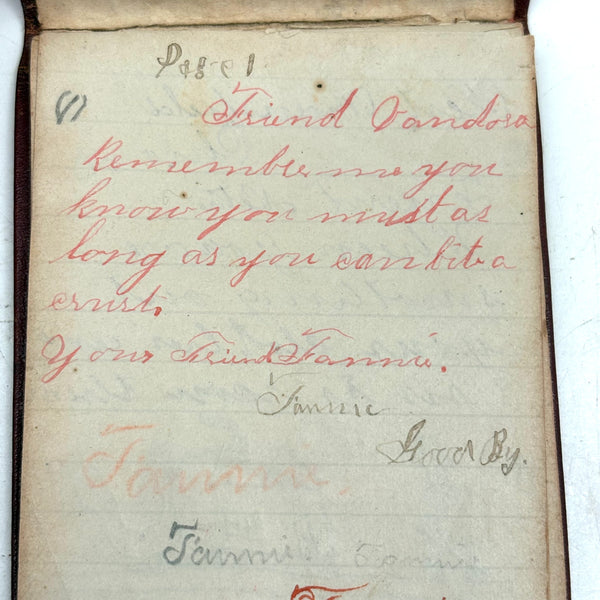 Page 1
(1)
Friend Vandora
Remember me you
know you must as
long as you can bite a
crust.
Your Friend Fannie.
Fannie
Good By.
Fannie.
Fannie Fannie